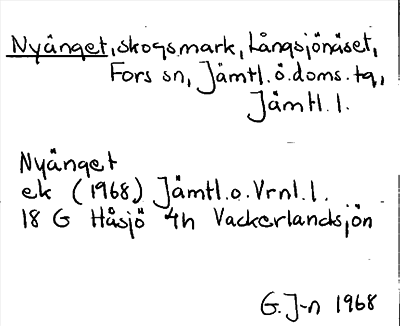 Nyänget, skogsmark, Långsjönäset,
Fors sn, Jämtl. ö. doms. tg,
Jämtl. l.
Nyänget
ek (1968) Jämtl. o. Vrnl. l.
18 G Håsjö 4h Vackerlandsjön
G. J-n 1968